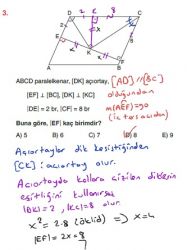 3.
D 2 K 8 C
E
K
A F B
ABCD paralelkenar, [DK] açıortay,
[EF] ⊥ [BC], [DK] ⊥ [KC]
|DE| = 2 br, |CF| = 8 br
[AD] // [BC]
olduğundan
m(AEF) = 90
(iç ters açıdan)
Buna göre, |EF| kaç birimdir?
A) 5 B) 6 C) 7 D) 8 E) 9
Açıortaylar dik kesiştiğinden
[CK] : açıortay olur.
Açıortayda kollara çizilen diklerin
eşitliğini kullanırsak
|DK| = 2, |KC| = 8 olur.
x² = 2·8 (öklid) ⇒ x = 4
|EF| = 2x = 8